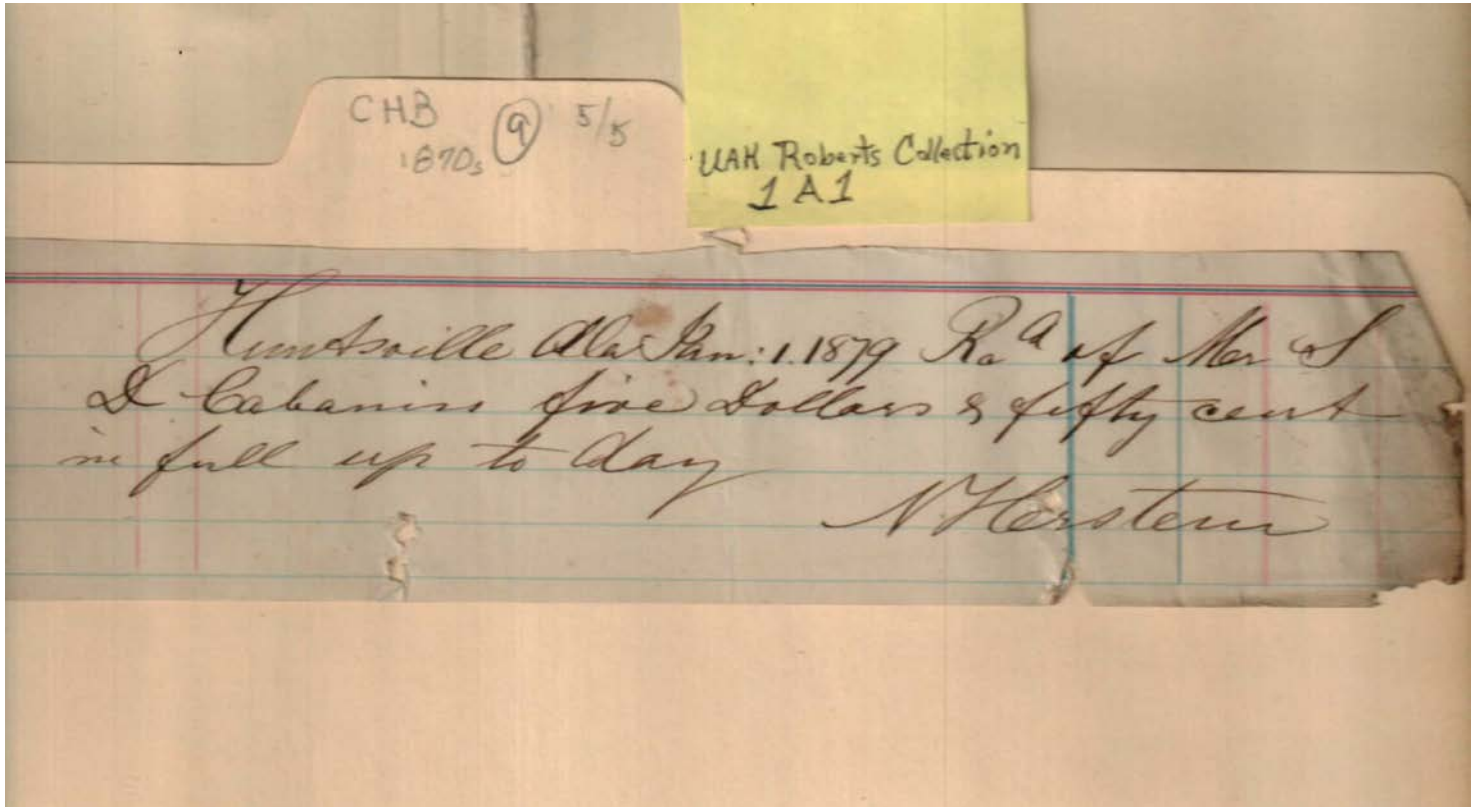 CHB 9 5/5
1870s
UAH Roberts Collection
1 A 1
Huntsville Ala Jan: 1. 1879 Rcd of Mr S
D Cabaniss five Dollars & fifty cent
in full up to day
N Herstein